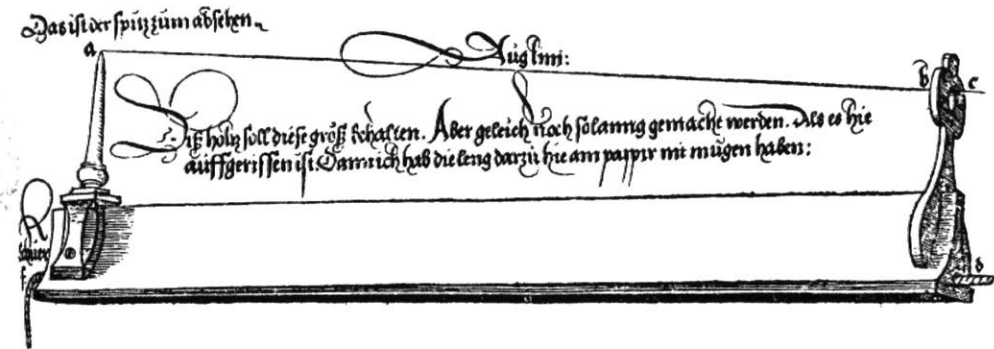 Das ist der spitz zům absehen
a
Aug lini:
b c
Diß holtz soll diese größ behalten. Aber geleich noch so lanng gemacht werden. Als es hie
auffgerissen ist. Dann ich hab die leng darzů hie am pappir nit můgen haben:
d